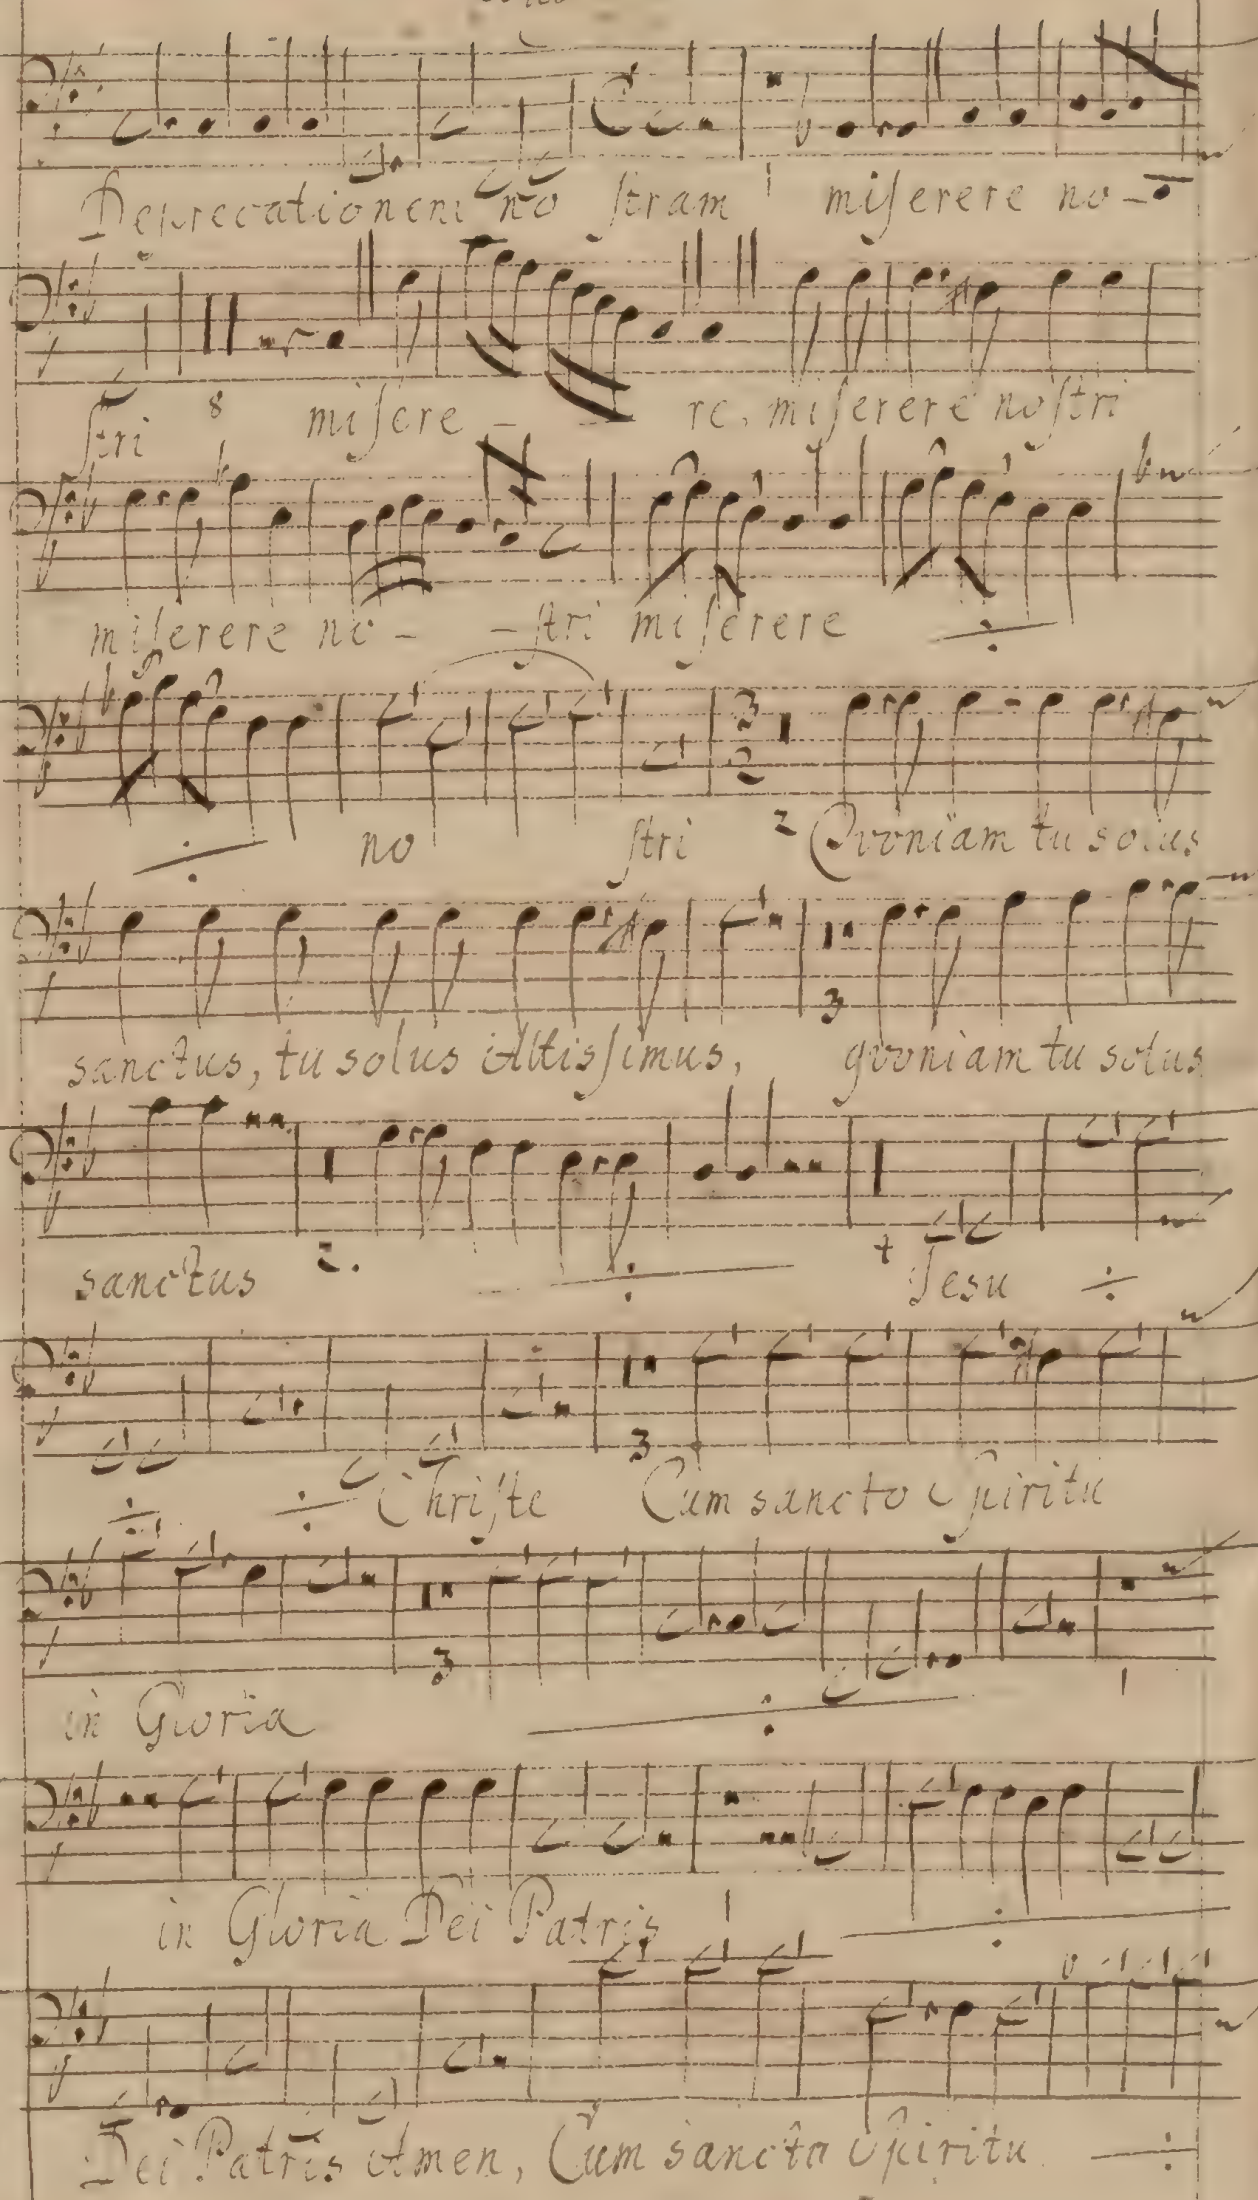 Deprecationem no ſtram miſerere no-
ſtri 8 miſere - - re, miſerere noſtri
miſerere no - - ſtri miſerere ÷
÷ no ſtri 2 Qvoniam tu solus
sanctus, tu solus Altisſimus, qvoniam tu solus
sanctus 2. ÷ Jesu ÷
÷ ÷ Chriſte 3 Cum sancto Spiritu
in Gloria 3 ÷ 1
in Gloria Dei Patris ÷
Dei Patris Amen, Cum sancto Spiritu ÷